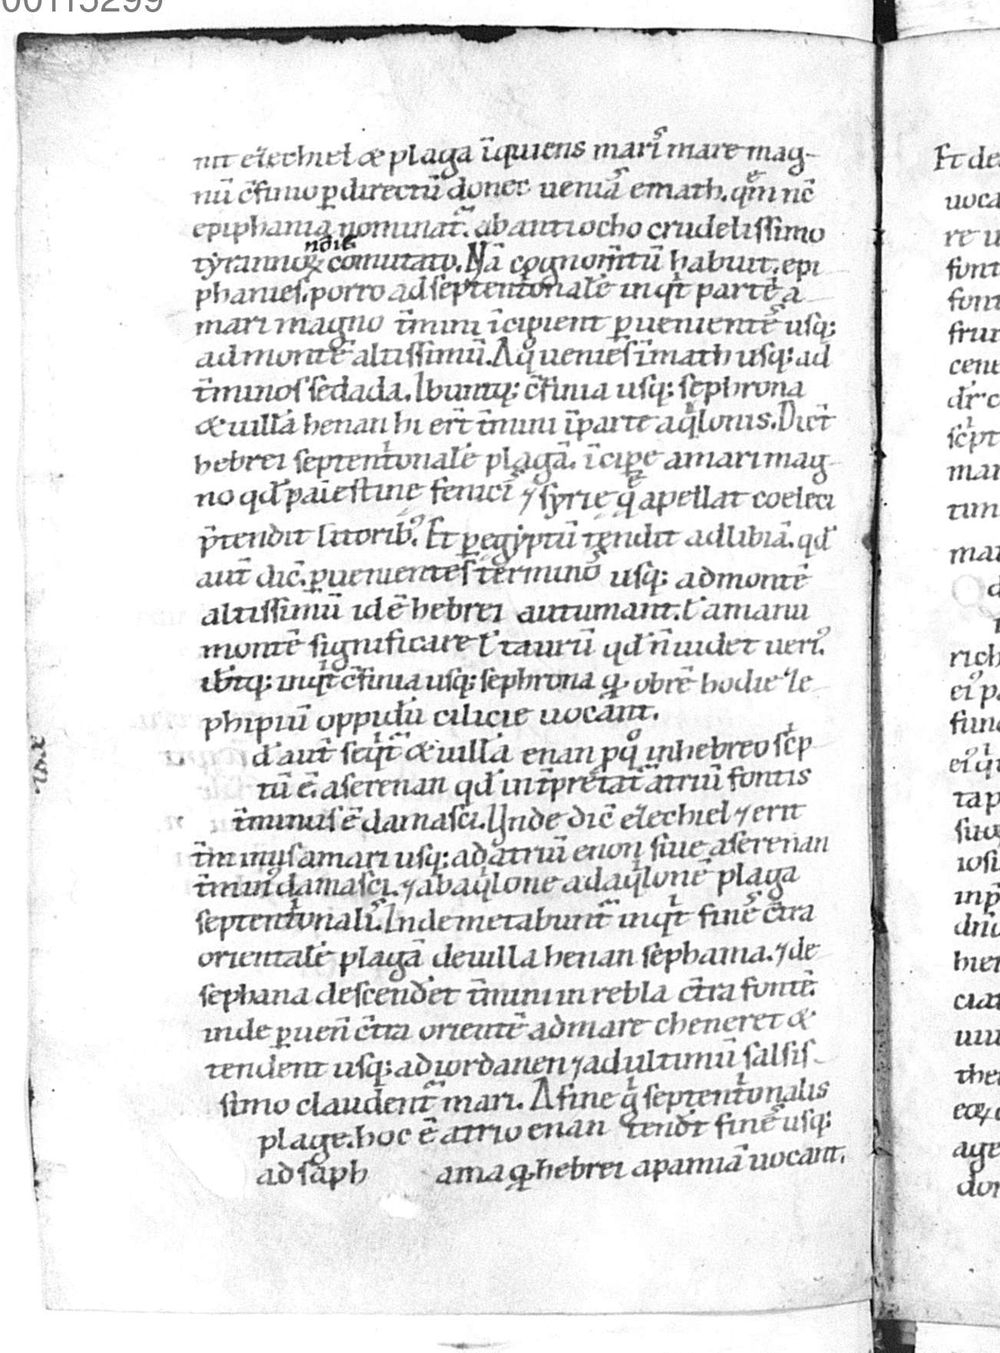 00115299
nit ezechiel & plaga īquiens maris mare mag-
nū c̄finio p̱ directū donec uenias emath. quē nc̄
epiphania nominat̄. ab antiocho crudelissimo
tyranno℞ comutato. Nā cognom̄tū habuit. epi
phanies. porro ad septentrionalē inqt partē a
mari magno t̄mini īcipient p̱uenientes usq;
ad montē altissimū. A quo uenies īmath usq; ad
t̄minos sedada. Ibuntq; c̄finia usq; sephrona
& uilla henan hi ert̄ t̄mini īparte aqlonis. Dict̄
hebrei septentrionalē plagā. īcipe amari mag-
no qđ palestine fenicis ⁊ syrie que apellat coeleci
p̄tendit litorib;. Et p̱ egyptū tendit ad libiā. qđ
aut̄ dic̄. p̱uenientes terminos usq; ad montē
altissimū id ē hebrei autumant. ł amanū
montē significare ł taurū qđ n̄ uidet uerius.
ibitq; inqt c̄finia usq; sephrona quā obrē hodie ze
phipiū oppidū cilicie uocant.
đ aut̄ seqt̄ & uilla enan pquo in hebreo scrip
tū ē. aserenan qđ int̄pretat̄ atriū fontis
t̄minus ē damasci. Unde dic̄ ezechiel ⁊ erit
t̄minus amari usq; ad atriū enon siue aserenan
t̄minus damasci. ⁊ ab aqlone ad aqlonē plaga
septentrionalis. Inde metabunt̄ inqt fines c̄tra
orientalē plagā de uilla henan sephama. ⁊ de
sephana descendet t̄mini in rebla c̄tra fontē.
inde p̱uen̄ c̄tra orientē ad mare cheneret &
tendent usq; ad iordanen ⁊ ad ultimū salsis-
simo claudent̄ mari. A fine qui septentrionalis
plage. hoc ē atrio enan tendt̄ fines usq;
ad saph ama quā hebrei apamiā uocant.
Et de
uoca
re u
font
font
frur
cene
mar
tun
mar
rich
fund
tap
iosi
inp̄
hier
ciat
uiu
the
age
don